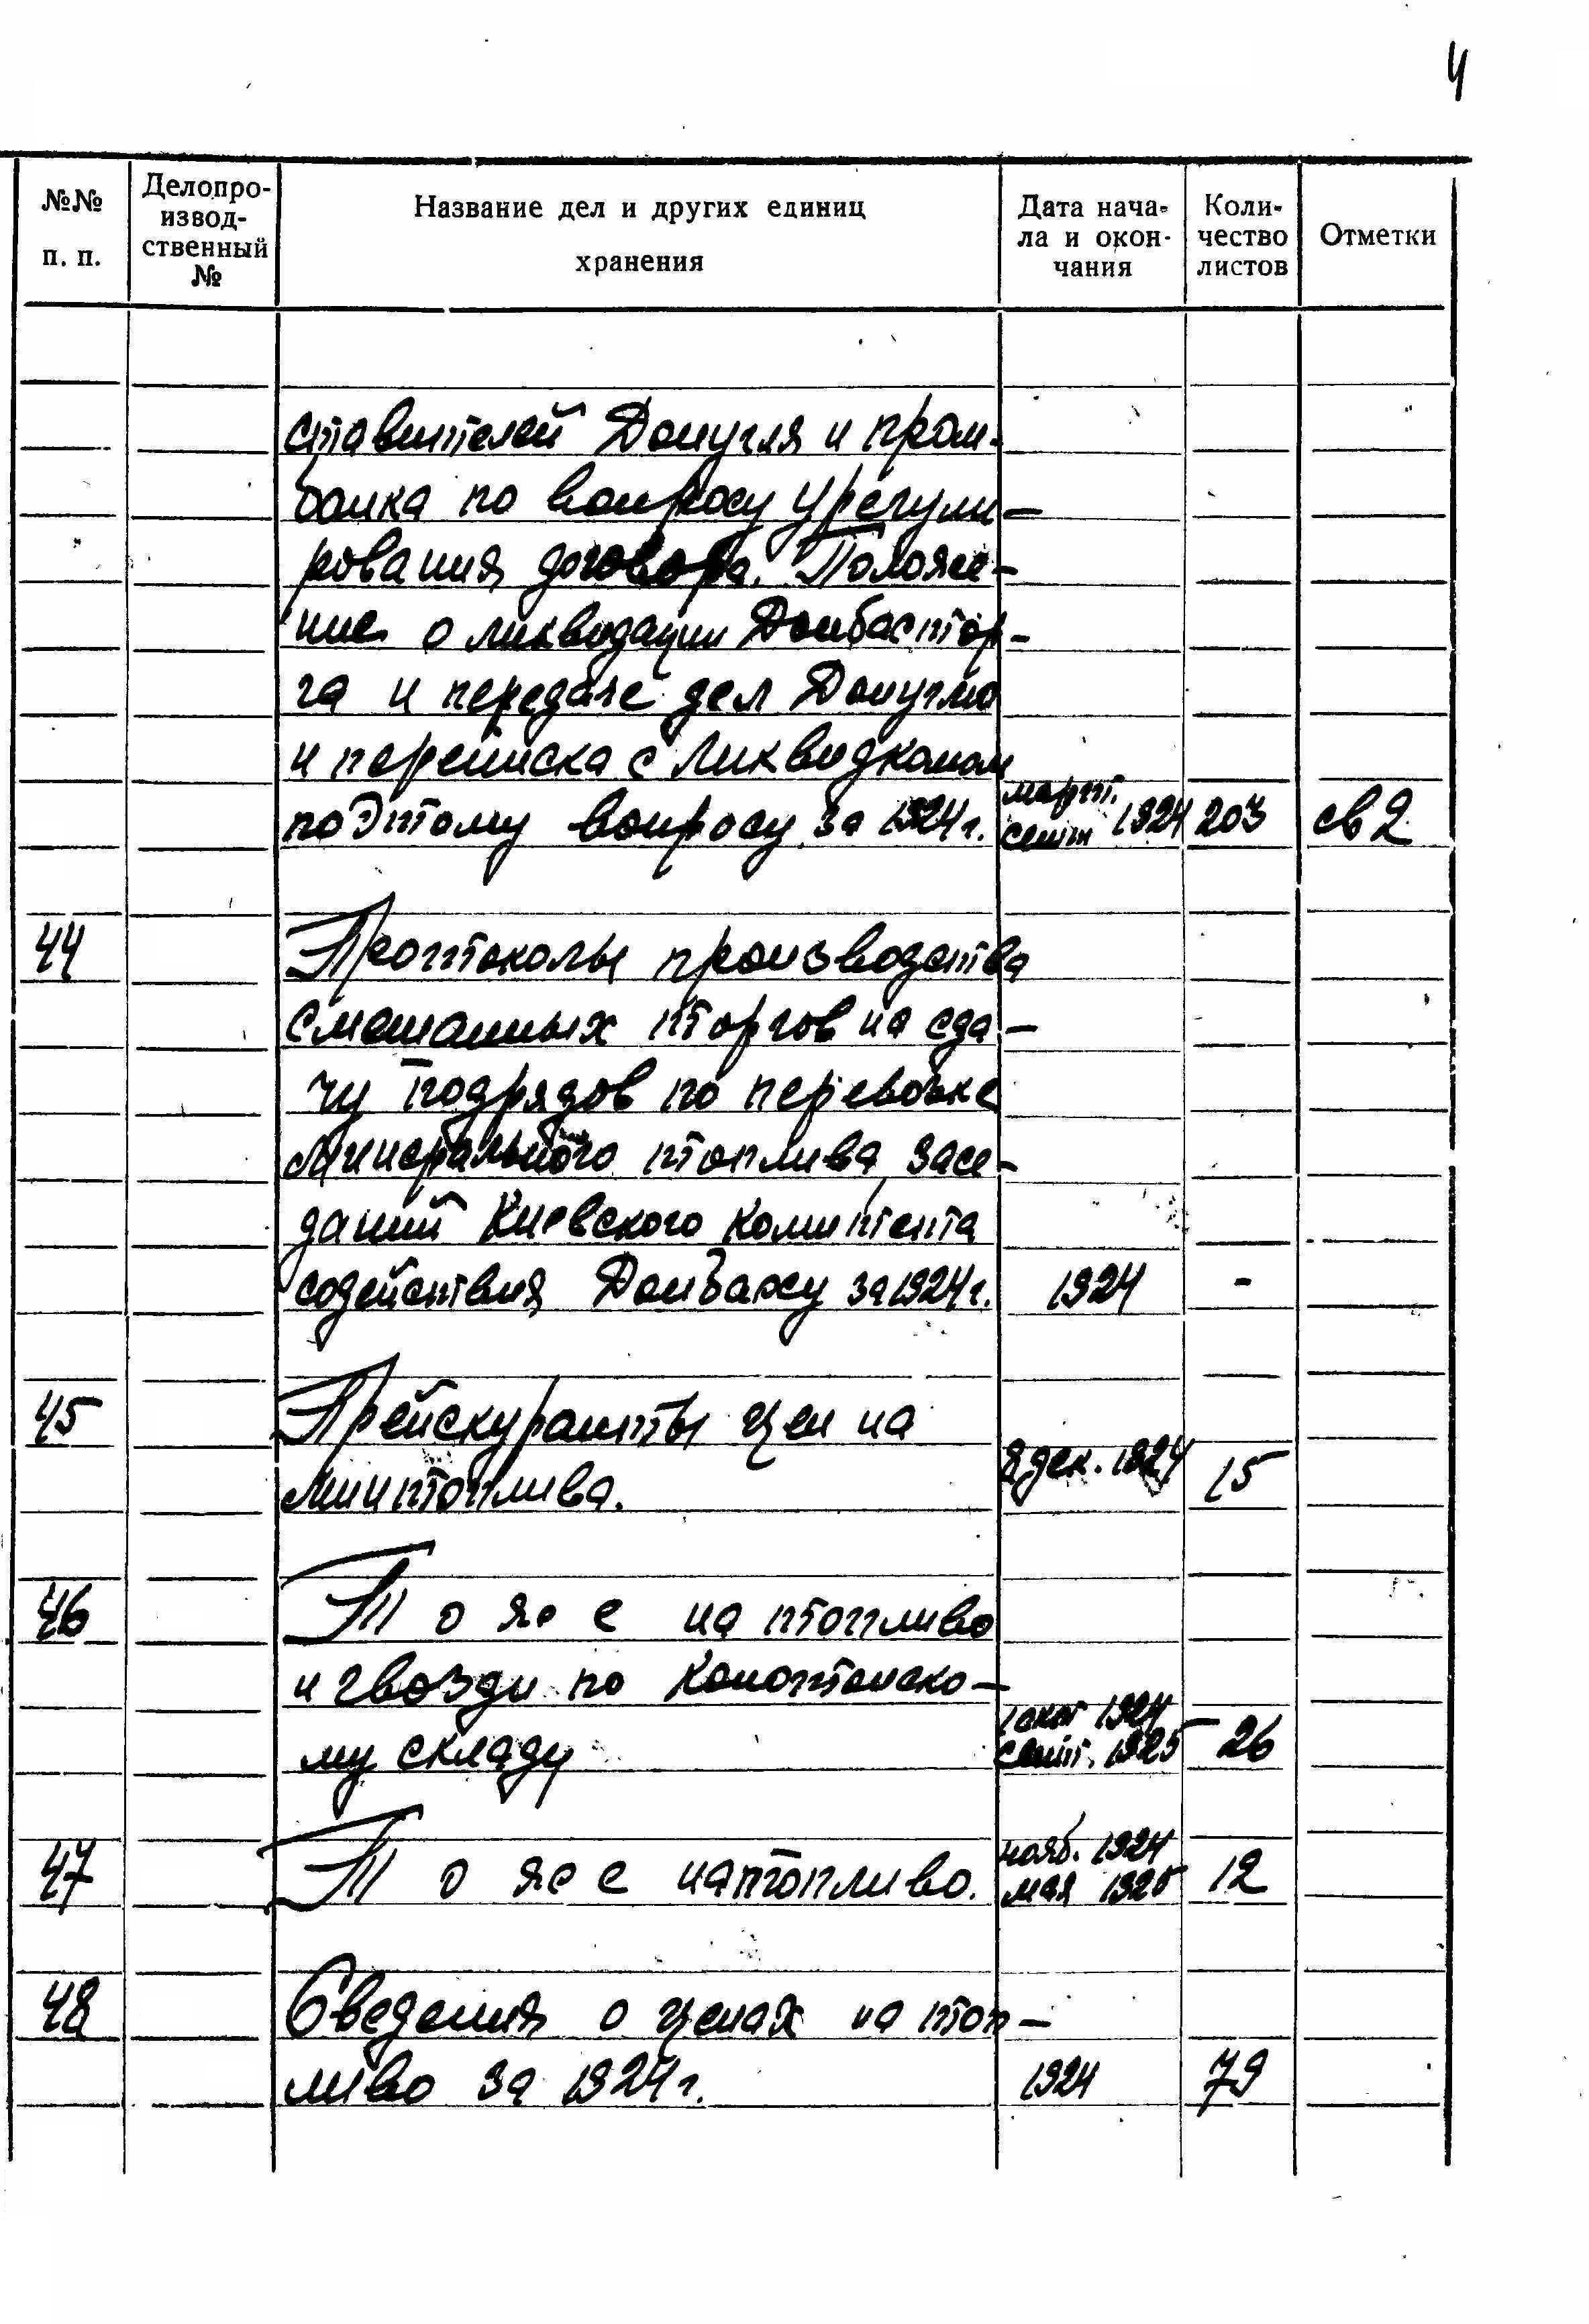 4
№№ п. п.
Делопро-
извод-
ственный
№
Название дел и других единиц
хранения
Дата нача-
ла и окон-
чания
Коли-
чество
листов
Отметки
ставителей Донугля и пром-
банка по вопросу урегули-
рования договора. Положе-
ние о ликвидации Донбастор-
га и передаче дел Донуглю
и переписка с Ликвидкомом
по этому вопросу за 1924 г. март. сентя 1924 203 св 2
44 Протоколы производства
смешанных торгов на сда-
чу подрядов по перевозке
минерального топлива, засе-
даний Киевского комитета
содействия Донбассу за 1924 г. 1924 -
45 Прейскуранты цен на
минтоплива. 8 дек. 1924 15
46 То же на топливо
и гвозди по Конотопско-
му складу 1 окт 1924 сент. 1925 26
47 То же на топливо. нояб. 1924 мая 1925 12
48 Сведения о ценах на топ-
ливо за 1924 г. 1924 79